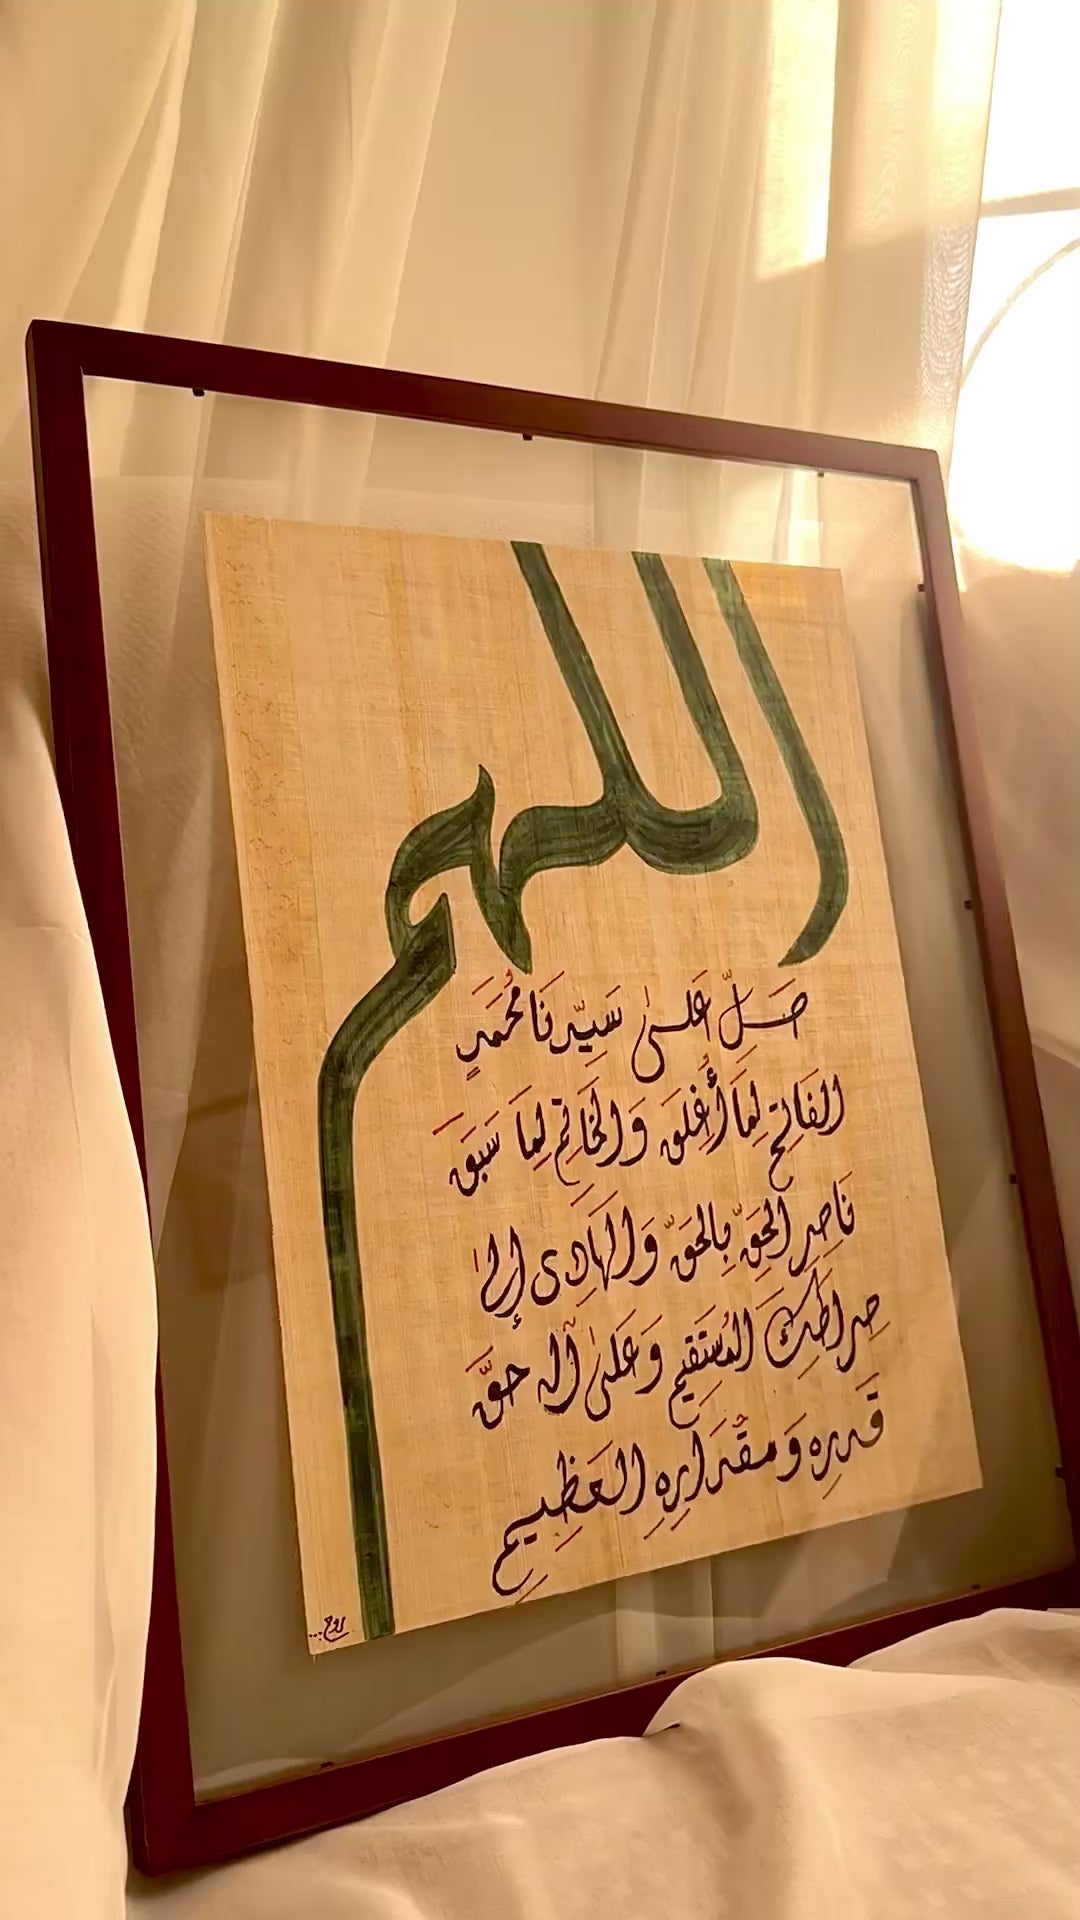 اللهم
صَلِّ عَلىٰ سَيِّدِنَا مُحَمَدٍ
الفَاتِحِ لِمَا أُغْلِقَ وَالخَاتِمِ لِمَا سَبَقَ
نَاصِرِ الحَقِّ بِالحَقِّ وَالهَادِى إِلىٰ
صِرَاطِكَ المُسْتَقِيمِ وَعَلىٰ آلهِ حَقَّ
قَدرِهِ وَمِقْدَارِهِ العَظِيمِ
روح...